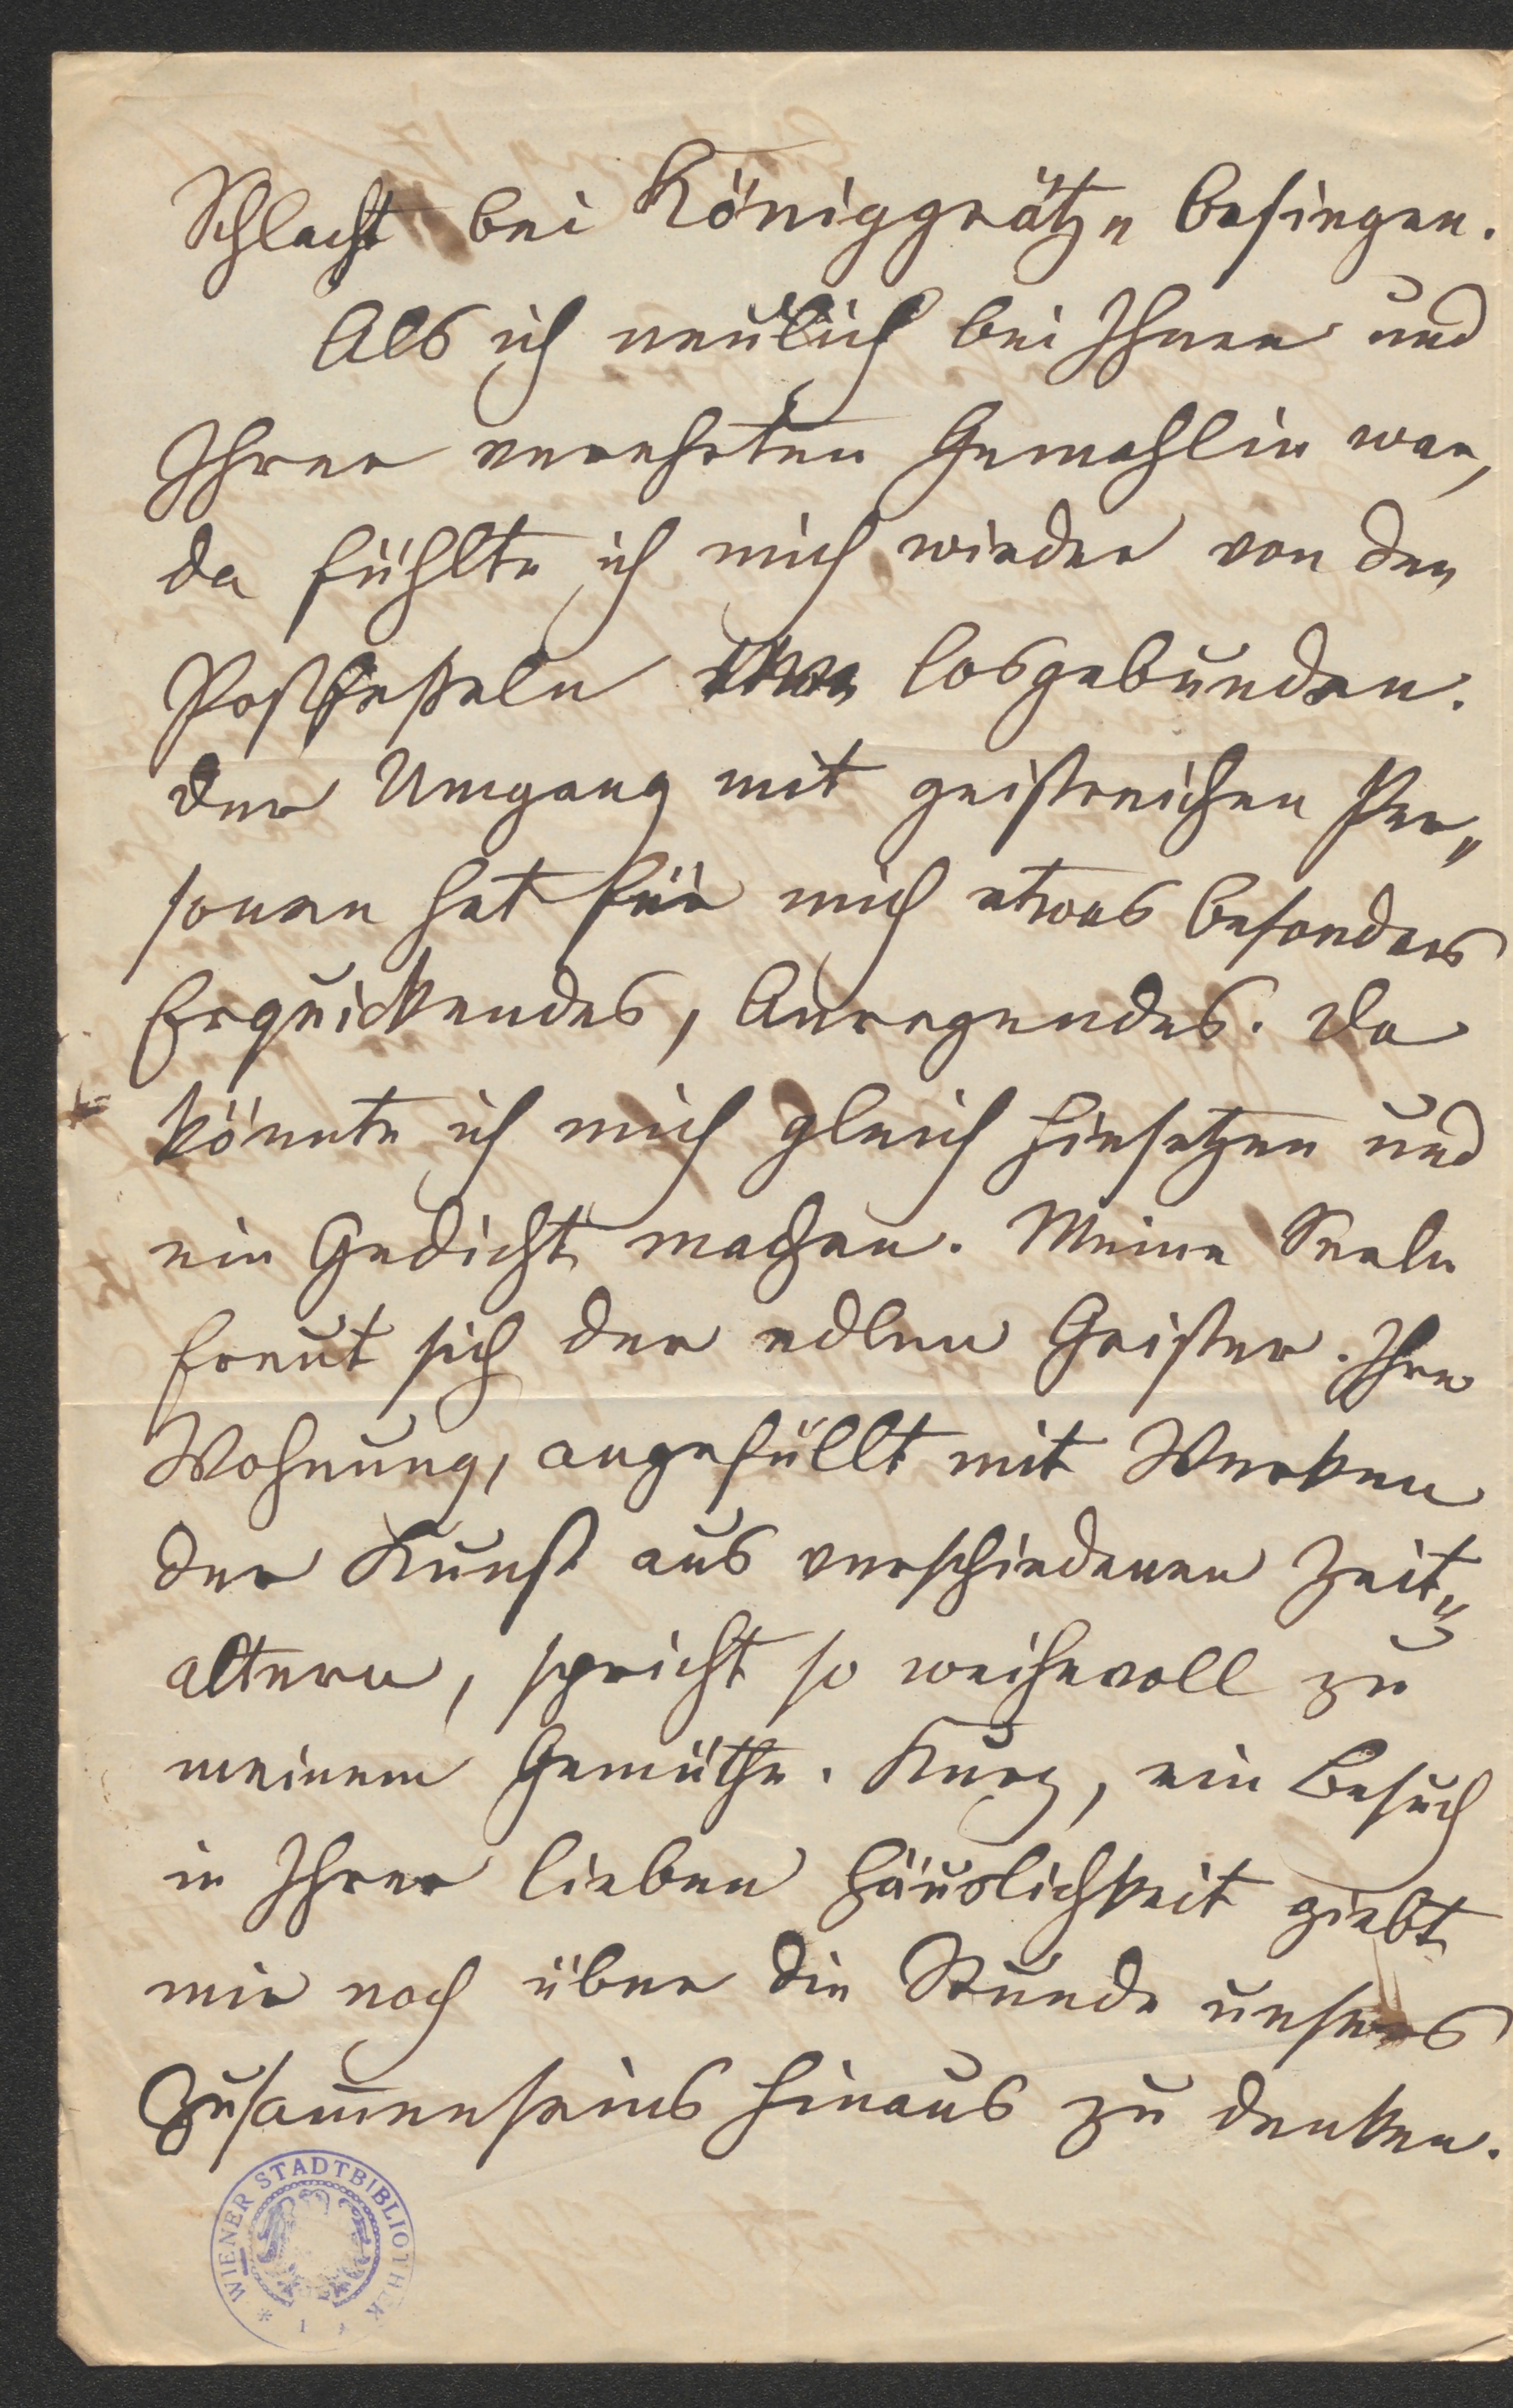 Schlacht bei Königgrätz" besingen.
Als ich neulich bei Ihnen und
Ihrer verehrten Gemahlin war,
da fühlte ich mich wieder von den
Postfesseln losgebunden.
Der Umgang mit geistreichen Per„
sonen hat für mich etwas besonders
Erquickendes, Anregendes. Da
könnte ich mich gleich hinsetzen und
ein Gedicht machen. Meine Seele
freut sich der edlen Geister. Ihre
Wohnung, angefüllt mit Werken
der Kunst aus verschiedenen Zeit„
altern, spricht so weihevoll zu
meinem Gemüthe. Kurz, ein Besuch
in Ihrer lieben Häuslichkeit giebt
mir noch über die Stunde unsers
Zusam̅enseins hinaus zu denken.
* WIENER STADTBIBLIOTHEK *